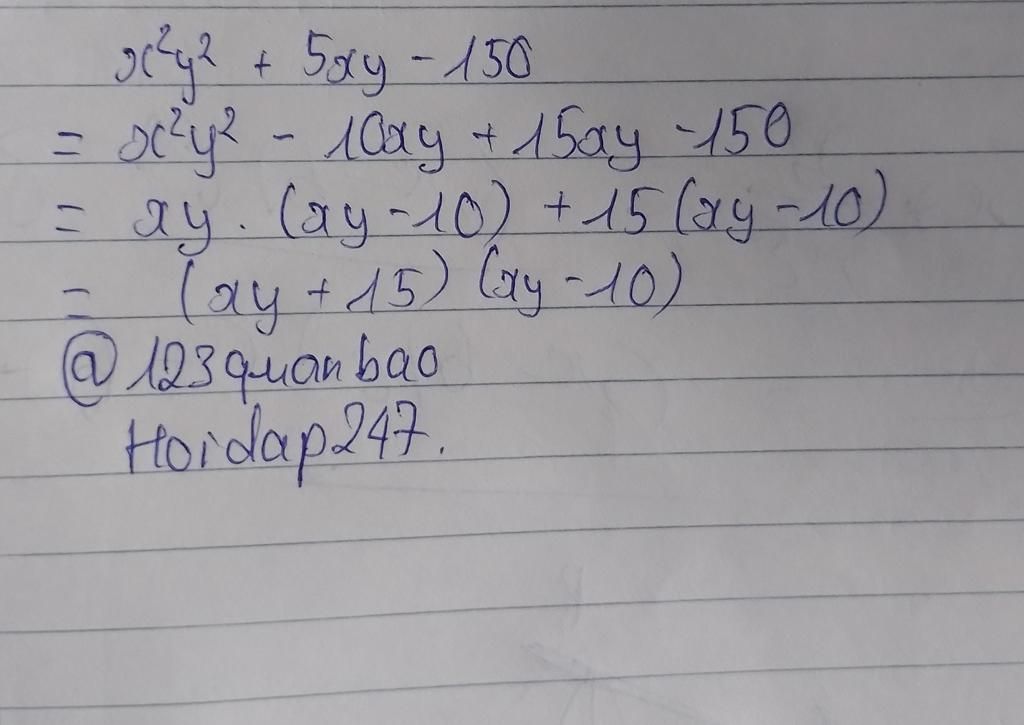 x²y² + 5xy - 150
= x²y² - 10xy + 15xy - 150
= xy . (xy - 10) + 15 (xy - 10)
= (xy + 15) (xy - 10)
@ 123quanbao
Hoidap247.